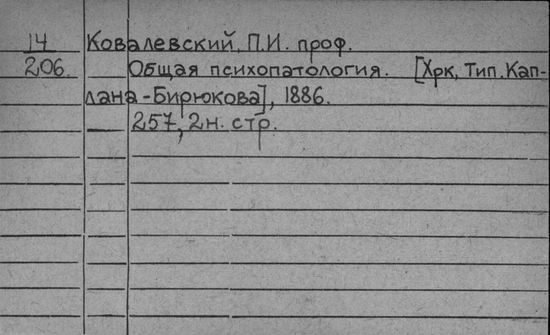 14 Ковалевский, П.И. проф.
206. Общая психопатология. [Хрк, Тип. Кап-
лана-Бирюкова], 1886.
257, 2н. стр.